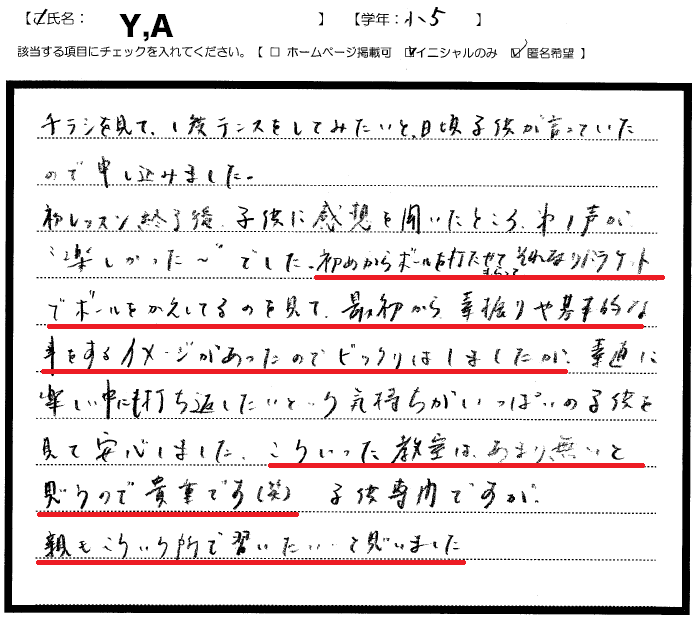 【ご氏名： Y,A 】 【学年：小5 】
該当する項目にチェックを入れてください。【 □ ホームページ掲載可 ☑イニシャルのみ ☑ 匿名希望 】
チラシを見て、1度テニスをしてみたいと、日頃子供が言っていた
ので申し込みました。
初レッスン終了後、子供に感想を聞いたところ、第1声が
"楽しかった～"でした。初めからボールを打たせてもらって それなりにラケット
でボールをかえしてるのを見て、最初から、素振りや基本的な
事をするイメージがあったのでビックリはしましたが、素直に
楽しい中にも打ち返したいという気持ちがいっぱいの子供を
見て安心しました、こういった教室は、あまり無いと
思うので貴重です(笑) 子供専門ですが、
親もこういう所で習いたい…と思いました